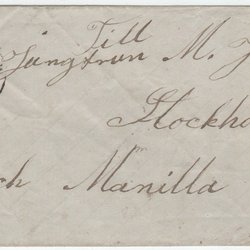 Till
Jungfrun M. J
Stockho
ch Manilla